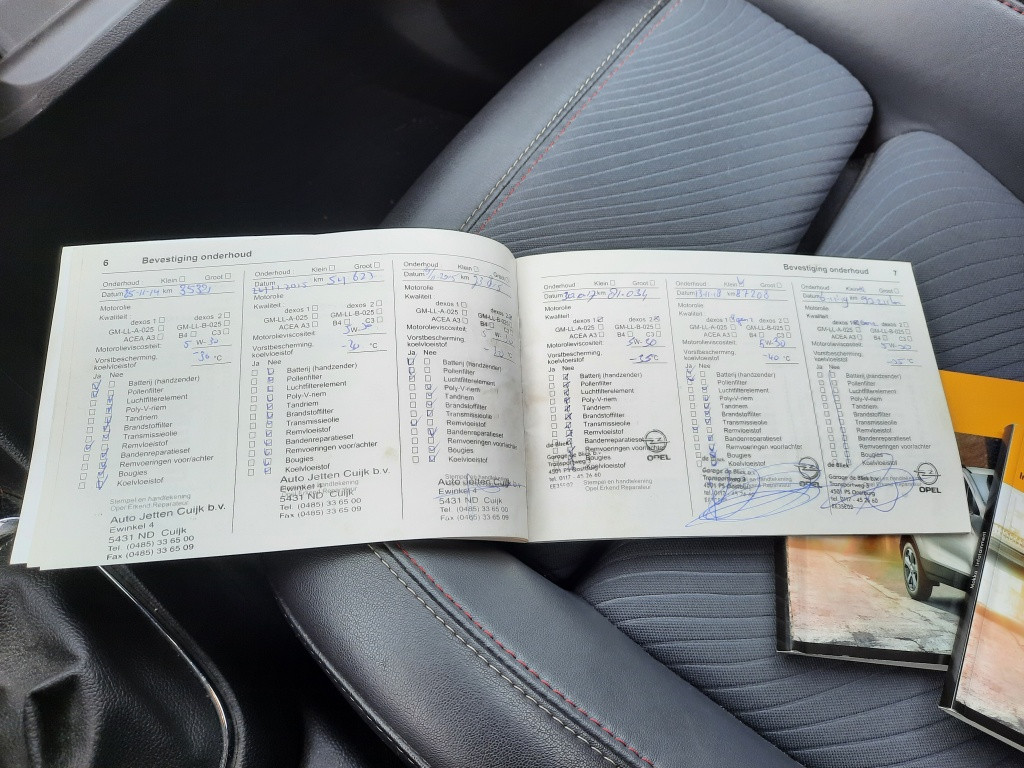 6 Bevestiging onderhoud
Onderhoud Klein Groot
Datum 25-11-14 km
Motorolie
Kwaliteit
dexos 1 dexos 2
GM-LL-A-025 GM-LL-B-025
ACEA A3 B4 C3
Motorolieviscositeit:
5 W-30
Vorstbescherming, koelvloeistof
-36 °C
Ja Nee
Batterij (handzender)
Pollenfilter
Luchtfilterelement
Poly-V-riem
Tandriem
Brandstoffilter
Transmissieolie
Remvloeistof
Bandenreparatieset
Remvoeringen voor/achter
Bougies
Koelvloeistof
Stempel en handtekening
Opel Erkend Reparateur
Auto Jetten Cuijk b.v.
Ewinkel 4
5431 ND Cuijk
Tel. (0485) 33 65 00
Fax (0485) 33 65 09
Onderhoud Klein Groot
Datum km
Motorolie
Kwaliteit:
dexos 1 dexos 2
GM-LL-A-025 GM-LL-B-025
ACEA A3 B4 C3
Motorolieviscositeit:
Vorstbescherming, koelvloeistof
°C
Ja Nee
Batterij (handzender)
Pollenfilter
Luchtfilterelement
Poly-V-riem
Tandriem
Brandstoffilter
Transmissieolie
Remvloeistof
Bandenreparatieset
Remvoeringen voor/achter
Bougies
Koelvloeistof
Auto Jetten Cuijk b.v.
Ewinkel 4
5431 ND Cuijk
Tel. (0485) 33 65 00
Fax (0485) 33 65 09
Onderhoud Klein Groot
Datum km
Motorolie
Kwaliteit
dexos 1 dexos 2
GM-LL-A-025 GM-LL-B-025
ACEA A3 B4 C3
Motorolieviscositeit:
Vorstbescherming, koelvloeistof
°C
Ja Nee
Batterij (handzender)
Pollenfilter
Luchtfilterelement
Poly-V-riem
Tandriem
Brandstoffilter
Transmissieolie
Remvloeistof
Bandenreparatieset
Remvoeringen voor/achter
Bougies
Koelvloeistof
Auto Jetten Cuijk b.v.
Ewinkel 4
5431 ND Cuijk
Tel. (0485) 33 65 00
Fax (0485) 33 65 09
Bevestiging onderhoud 7
Onderhoud Klein Groot
Datum km 81.034
Motorolie
Kwaliteit
dexos 1 dexos 2
GM-LL-A-025 GM-LL-B-025
ACEA A3 B4 C3
Motorolieviscositeit:
5W-30
Vorstbescherming, koelvloeistof
-35 °C
Ja Nee
Batterij (handzender)
Pollenfilter
Luchtfilterelement
Poly-V-riem
Tandriem
Brandstoffilter
Transmissieolie
Remvloeistof
Bandenreparatieset
Remvoeringen voor/achter
Bougies
Koelvloeistof
Stempel en handtekening
Opel Erkend Reparateur
de Bliek
Transportweg 3
4501 PS Oostburg
tel. 0117 - 45 26 60
OPEL
Onderhoud Klein Groot
Datum km 87208
Motorolie
Kwaliteit
dexos 1 dexos 2
GM-LL-A-025 GM-LL-B-025
ACEA A3 B4 C3
Motorolieviscositeit:
5W-30
Vorstbescherming, koelvloeistof
-40 °C
Ja Nee
Batterij (handzender)
Pollenfilter
Luchtfilterelement
Poly-V-riem
Tandriem
Brandstoffilter
Transmissieolie
Remvloeistof
Bandenreparatieset
Remvoeringen voor/achter
Bougies
Koelvloeistof
de Bliek
Transportweg 3
4501 PS Oostburg
tel. 0117 - 45 26 60
OPEL
Onderhoud Klein Groot
Datum km
Motorolie
Kwaliteit
dexos 1 dexos 2
GM-LL-A-025 GM-LL-B-025
ACEA A3 B4 C3
Motorolieviscositeit:
Vorstbescherming, koelvloeistof
°C
Ja Nee
Batterij (handzender)
Pollenfilter
Luchtfilterelement
Poly-V-riem
Tandriem
Brandstoffilter
Transmissieolie
Remvloeistof
Bandenreparatieset
Remvoeringen voor/achter
Bougies
Koelvloeistof
de Bliek
Transportweg 3
4501 PS Oostburg
tel. 0117 - 45 26 60
OPEL